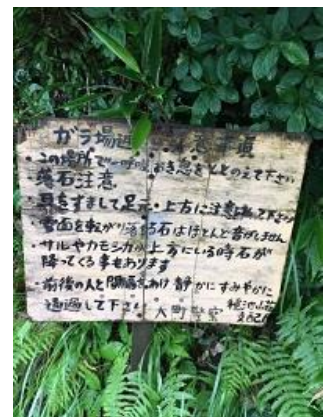 ガラ場通過 注意事項
・この場所で一呼吸おき息をととのえて下さい
落石注意
・耳をすまして足元・上方に注意して下さい
・雪面を転がり落石はほとんど音がしません
・サルやカモシカが上方にいる時石が
降ってくる事もあります
・前後の人と間隔をあけ静かにすみやかに
通過して下さい 大町警察
支配人